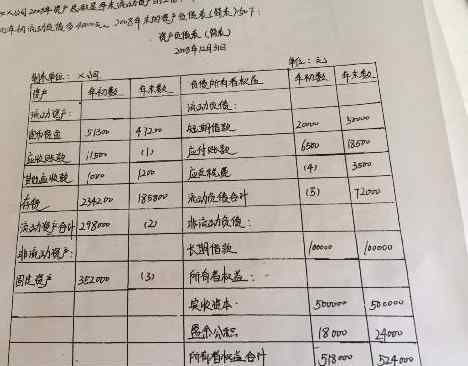 公司2008年资产总额是年末流动资产的
年初流动负债多4000元。2008年末的资产负债表(简表)如下:
资产负债表(简表)
2008年12月31日
制表单位: ×公司 单位:元
资产 年初数 年末数 负债所有者权益 年初数 年末数
流动资产: 流动负债:
货币资金 51300 47200 短期借款 20000 50000
应收账款 11500 (1) 应付账款 6500 18500
其他应收款 1000 1200 应交税费 (4) 3500
存货 234200 185800 流动负债合计 (5) 72000
流动资产合计 298000 (2) 非流动负债:
非流动资产: 长期借款 100000 100000
固定资产 352000 (3) 所有者权益:
实收资本: 500000 500000
盈余公积 18000 24000
所有者权益合计 518000 524000